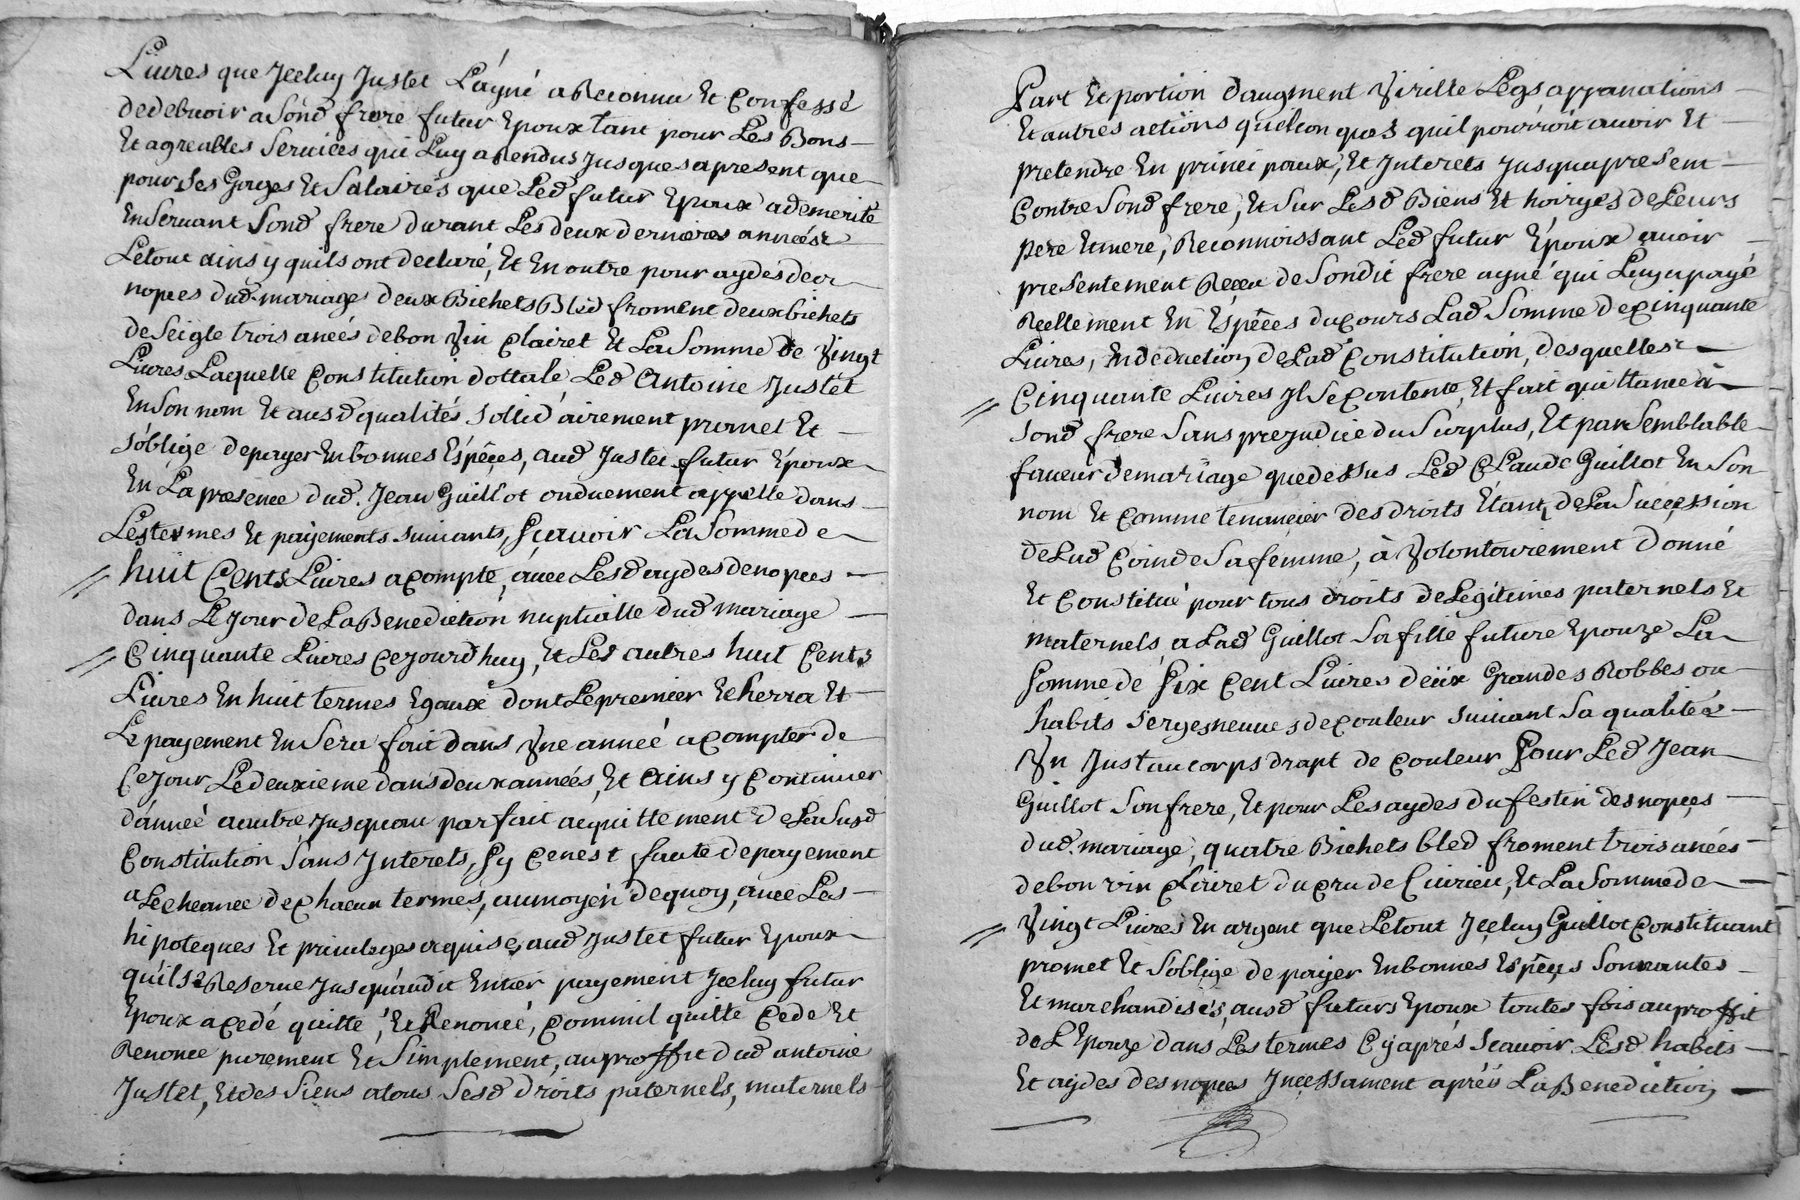 Livres que Jceluy Justet L'áyné a Reconnu Et Confessé
de debvoir a Sond frere futur Epoux tant pour Les Bons
Et agreables Services qui Luy a Rendus Jusques apresent que
pour Ses Gages Et Salairés que Led futur Epoux a demerité
En Servant Sond frere durant Les deux dernieres années
Le tout ainsy quils ont declaré, Et En outre pour aydes de
nopces dud. mariage deux Bichets Bled froment deux bichets
de Seigle trois aneés de bon Vin Clairet Et La Somme de Vingt
Livres Laquelle Constitution dottale Led Antoine Justet
En Son nom Et ausd qualités Sollid'airement promet Et
s'oblige de payer En bonnes Espêces, aud Justet futur Epoux
En La presence dud. Jean Guillot onduement appellé dans
Les termes Et payements suivants, Sçavoir La Somme de
huit Cents Livres a compte, avec Lesd aydes de nopces
dans Le Jour de La Benediction nuptialle dud mariage
Cinquante Livres Cejourdhuy, Et Les autres huit Cents
Livres En huit termes Egaux dont Le premier Echerra Et
Le payement En Sera fait dans Vne année a Compter de
Ce Jour Le deuxieme dans deux années, Et ainsy Continuer
d'année a autre Jusquau parfait acquittement de La Susd
Constitution Sans Interets, Sy Cenest faute de payement
a Lecheance de Chacun termes, au moyén de quoy, avec Les
hipoteques Et privileges acquises aud Justet futur Epoux
quil Se Reserve Jusqu'audit Entier payement Jceluy futur
Epoux a Cedé quitté, Et Renoncé, Comm'il quitte Cede Et
Renonce purement Et Simplement, au proffit dud antoine
Justet, Et des Siens a tous Sesd droits paternels, maternels
Part Et portion d'augment Virille Legs appanations
Et autres actions quelconques quil pourroit avoir Et
pretendre En principaux, Et Interets Jusquapresent
Contre Sond frere, Et Sur Lesd Biens Et hoiryes de Leurs
pere Et mere, Reconnoissant Led futur Époux avoir
presentement Receu de Sondit frere ayné qui Luy a payé
Reellement En Espêces du Cours Lad Somme de Cinquante
Livres, En deduction de Lad Constitution, desquelles
Cinquante Livres Jl Se Contente, Et fait quittance à
Sond frere Sans prejudice du Surplus, Et par Semblable
faveur de mariage que dessus Led Claude Guillot En Son
nom Et Comme tenancier des droits Étant de La Sucession
de Lad Coinde Sa femme, à Volontairement donné
Et Constitué pour tous droits de Légitimes paternels Et
maternels a Lad Guillot Sa fille future Epouze La
Somme de Six Cent Livres deüx Grandes Robbes ou
habits Serges neuves de Couleur Suivant Sa qualité
Vn Justaucorps drapt de Couleur Pour Led Jean
Guillot Son frere, Et pour Les aydes du festin des nopces
dud. mariage, quatre Bichets bled froment trois aneés
de bon vin Clairet du Cru de Civrieu, Et La Somme de
Vingt Livres En argent que Le tout Jceluy Guillot Constituant
promet Et S'oblige de payer En bonnes Espêces Sonnantes
Et marchandises, ausd futurs Epoux toutes fois au proffit
de L'Epouze dans Les termes Cy après Sçavoir Lesd habits
Et aydes des nopces Jncessament aprés La Benediction